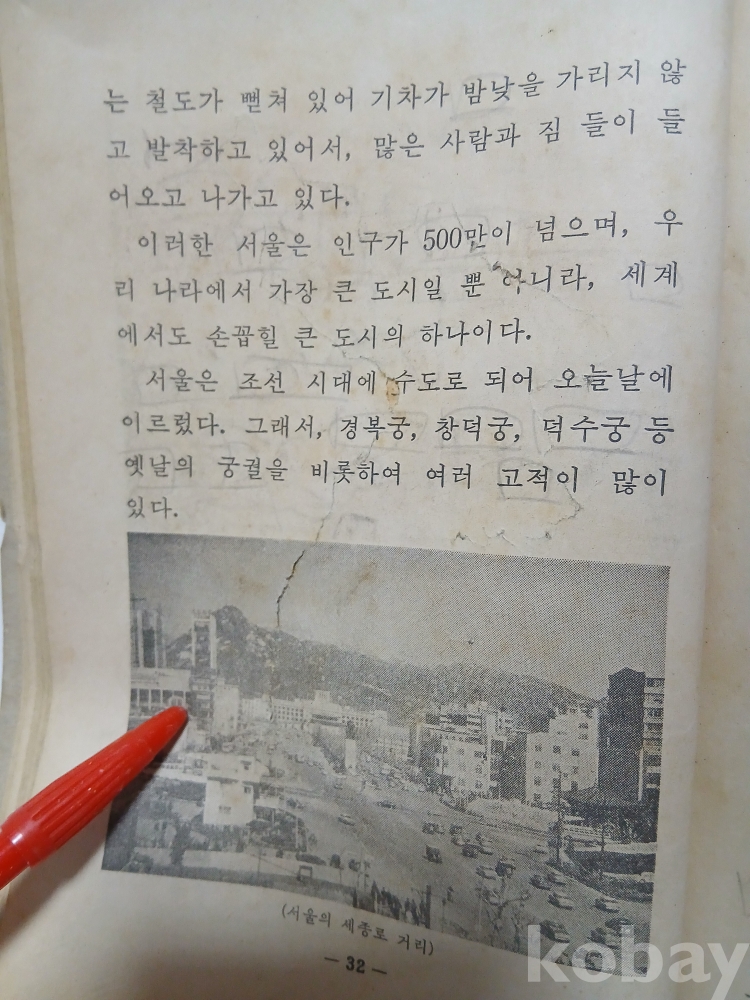 는 철도가 뻗쳐 있어 기차가 밤낮을 가리지 않
고 발착하고 있어서, 많은 사람과 짐 들이 들
어오고 나가고 있다.
이러한 서울은 인구가 500만이 넘으며, 우
리 나라에서 가장 큰 도시일 뿐 아니라, 세계
에서도 손꼽힐 큰 도시의 하나이다.
서울은 조선 시대에 수도로 되어 오늘날에
이르렀다. 그래서, 경복궁, 창덕궁, 덕수궁 등
옛날의 궁궐을 비롯하여 여러 고적이 많이
있다.
(서울의 세종로 거리)
— 32 —
kobay